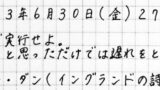 3年6月30日(金)27
実行せよ。
と思っただけでは遅れをと
・ダン(イングランドの詩